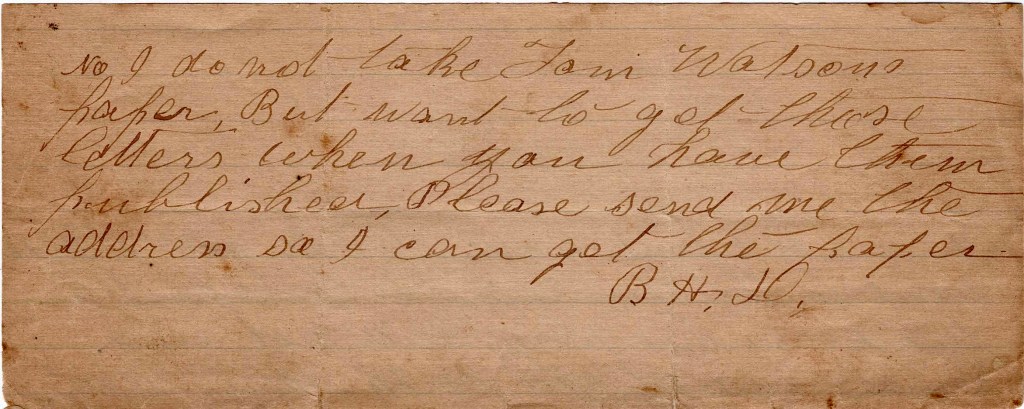 No I do not take Tom Watsons
paper, But want to get those
letters when you have them
published, Please send me the
address so I can get the paper
B H, D,